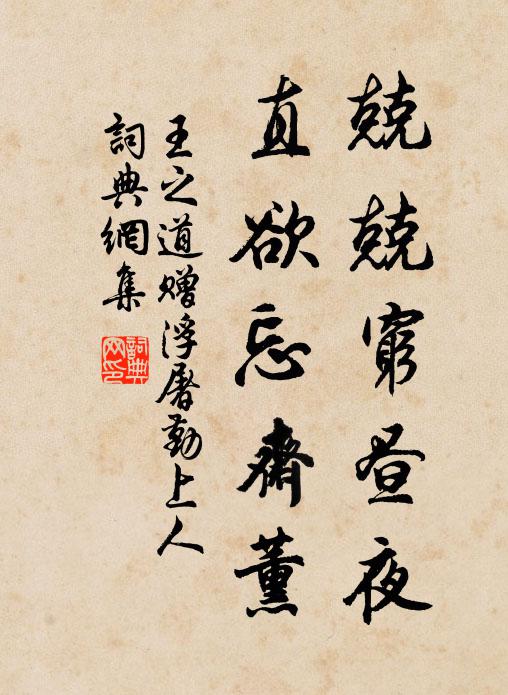 兢兢窮昼夜
直欲忘齋薰
王之道贈浮屠勤上人
詞典網集
詞典网印